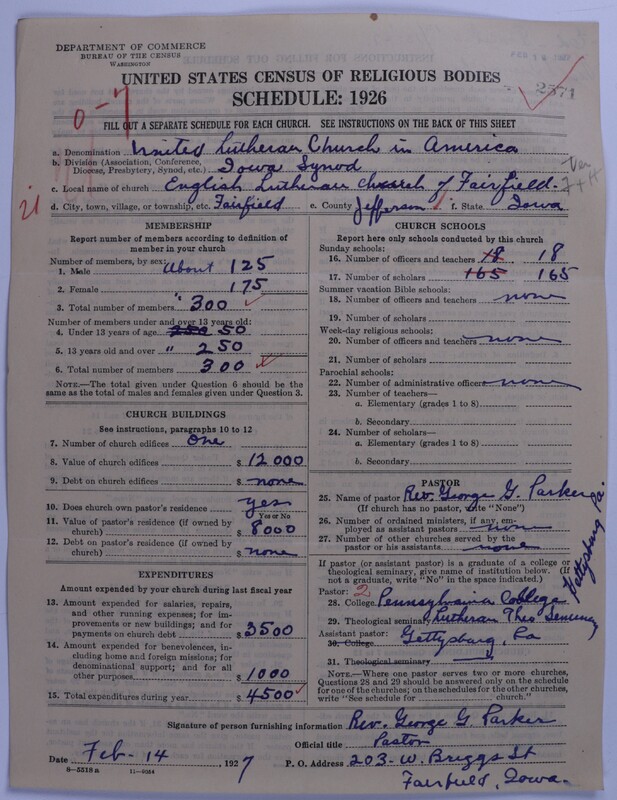 DEPARTMENT OF COMMERCE
BUREAU OF THE CENSUS
WASHINGTON
UNITED STATES CENSUS OF RELIGIOUS BODIES
2571
SCHEDULE: 1926
0-7
FILL OUT A SEPARATE SCHEDULE FOR EACH CHURCH. SEE INSTRUCTIONS ON THE BACK OF THIS SHEET
a. Denomination United Lutheran Church in America
b. Division (Association, Conference, Diocese, Presbytery, Synod, etc.) Iowa Synod
c. Local name of church English Lutheran Church of Fairfield.
d. City, town, village, or township, etc. Fairfield e. County Jefferson f. State Iowa
MEMBERSHIP
Report number of members according to definition of
member in your church
Number of members, by sex:
1. Male about 125
2. Female 175
3. Total number of members " 300
Number of members under and over 13 years old:
4. Under 13 years of age 250 50
5. 13 years old and over " 250
6. Total number of members 300
NOTE.—The total given under Question 6 should be the
same as the total of males and females given under Question 3.
CHURCH BUILDINGS
See instructions, paragraphs 10 to 12
7. Number of church edifices One
8. Value of church edifices $ 12000
9. Debt on church edifices $ none
10. Does church own pastor's residence yes
Yes or No
11. Value of pastor's residence (if owned by
church) $ 8000
12. Debt on pastor's residence (if owned by
church) $ none
EXPENDITURES
Amount expended by your church during last fiscal year
13. Amount expended for salaries, repairs,
and other running expenses; for improvements
or new buildings; and for
payments on church debt $ 3500
14. Amount expended for benevolences, including
home and foreign missions; for
denominational support; and for all
other purposes $ 1000
15. Total expenditures during year $ 4500
CHURCH SCHOOLS
Report here only schools conducted by this church
Sunday schools:
16. Number of officers and teachers 18 18
17. Number of scholars 165 165
Summer vacation Bible schools:
18. Number of officers and teachers none
19. Number of scholars
Week-day religious schools:
20. Number of officers and teachers none
21. Number of scholars
Parochial schools:
22. Number of administrative officers none
23. Number of teachers—
a. Elementary (grades 1 to 8)
b. Secondary
24. Number of scholars—
a. Elementary (grades 1 to 8)
b. Secondary
PASTOR
25. Name of pastor Rev. George G. Parker
(If church has no pastor, write "None")
26. Number of ordained ministers, if any, employed
as assistant pastors none
27. Number of other churches served by the
pastor or his assistants none
If pastor (or assistant pastor) is a graduate of a college or
theological seminary, give name of institution below. (If
not a graduate, write "No" in the space indicated.)
Pastor: 2
28. College Pennsylvania College Gettysburg Pa
29. Theological seminary Lutheran Theo Seminary
Assistant pastor:
30. College Gettysburg, Pa
31. Theological seminary
NOTE.—Where one pastor serves two or more churches,
Questions 28 and 29 should be answered only on the schedule
for one of the churches; on the schedules for the other churches,
write "See schedule for church."
Signature of person furnishing information Rev. George G. Parker
Official title Pastor
Date Feb-14 1927 P. O. Address 203-W. Briggs St
8—5518 a 11—9264 Fairfield, Iowa.